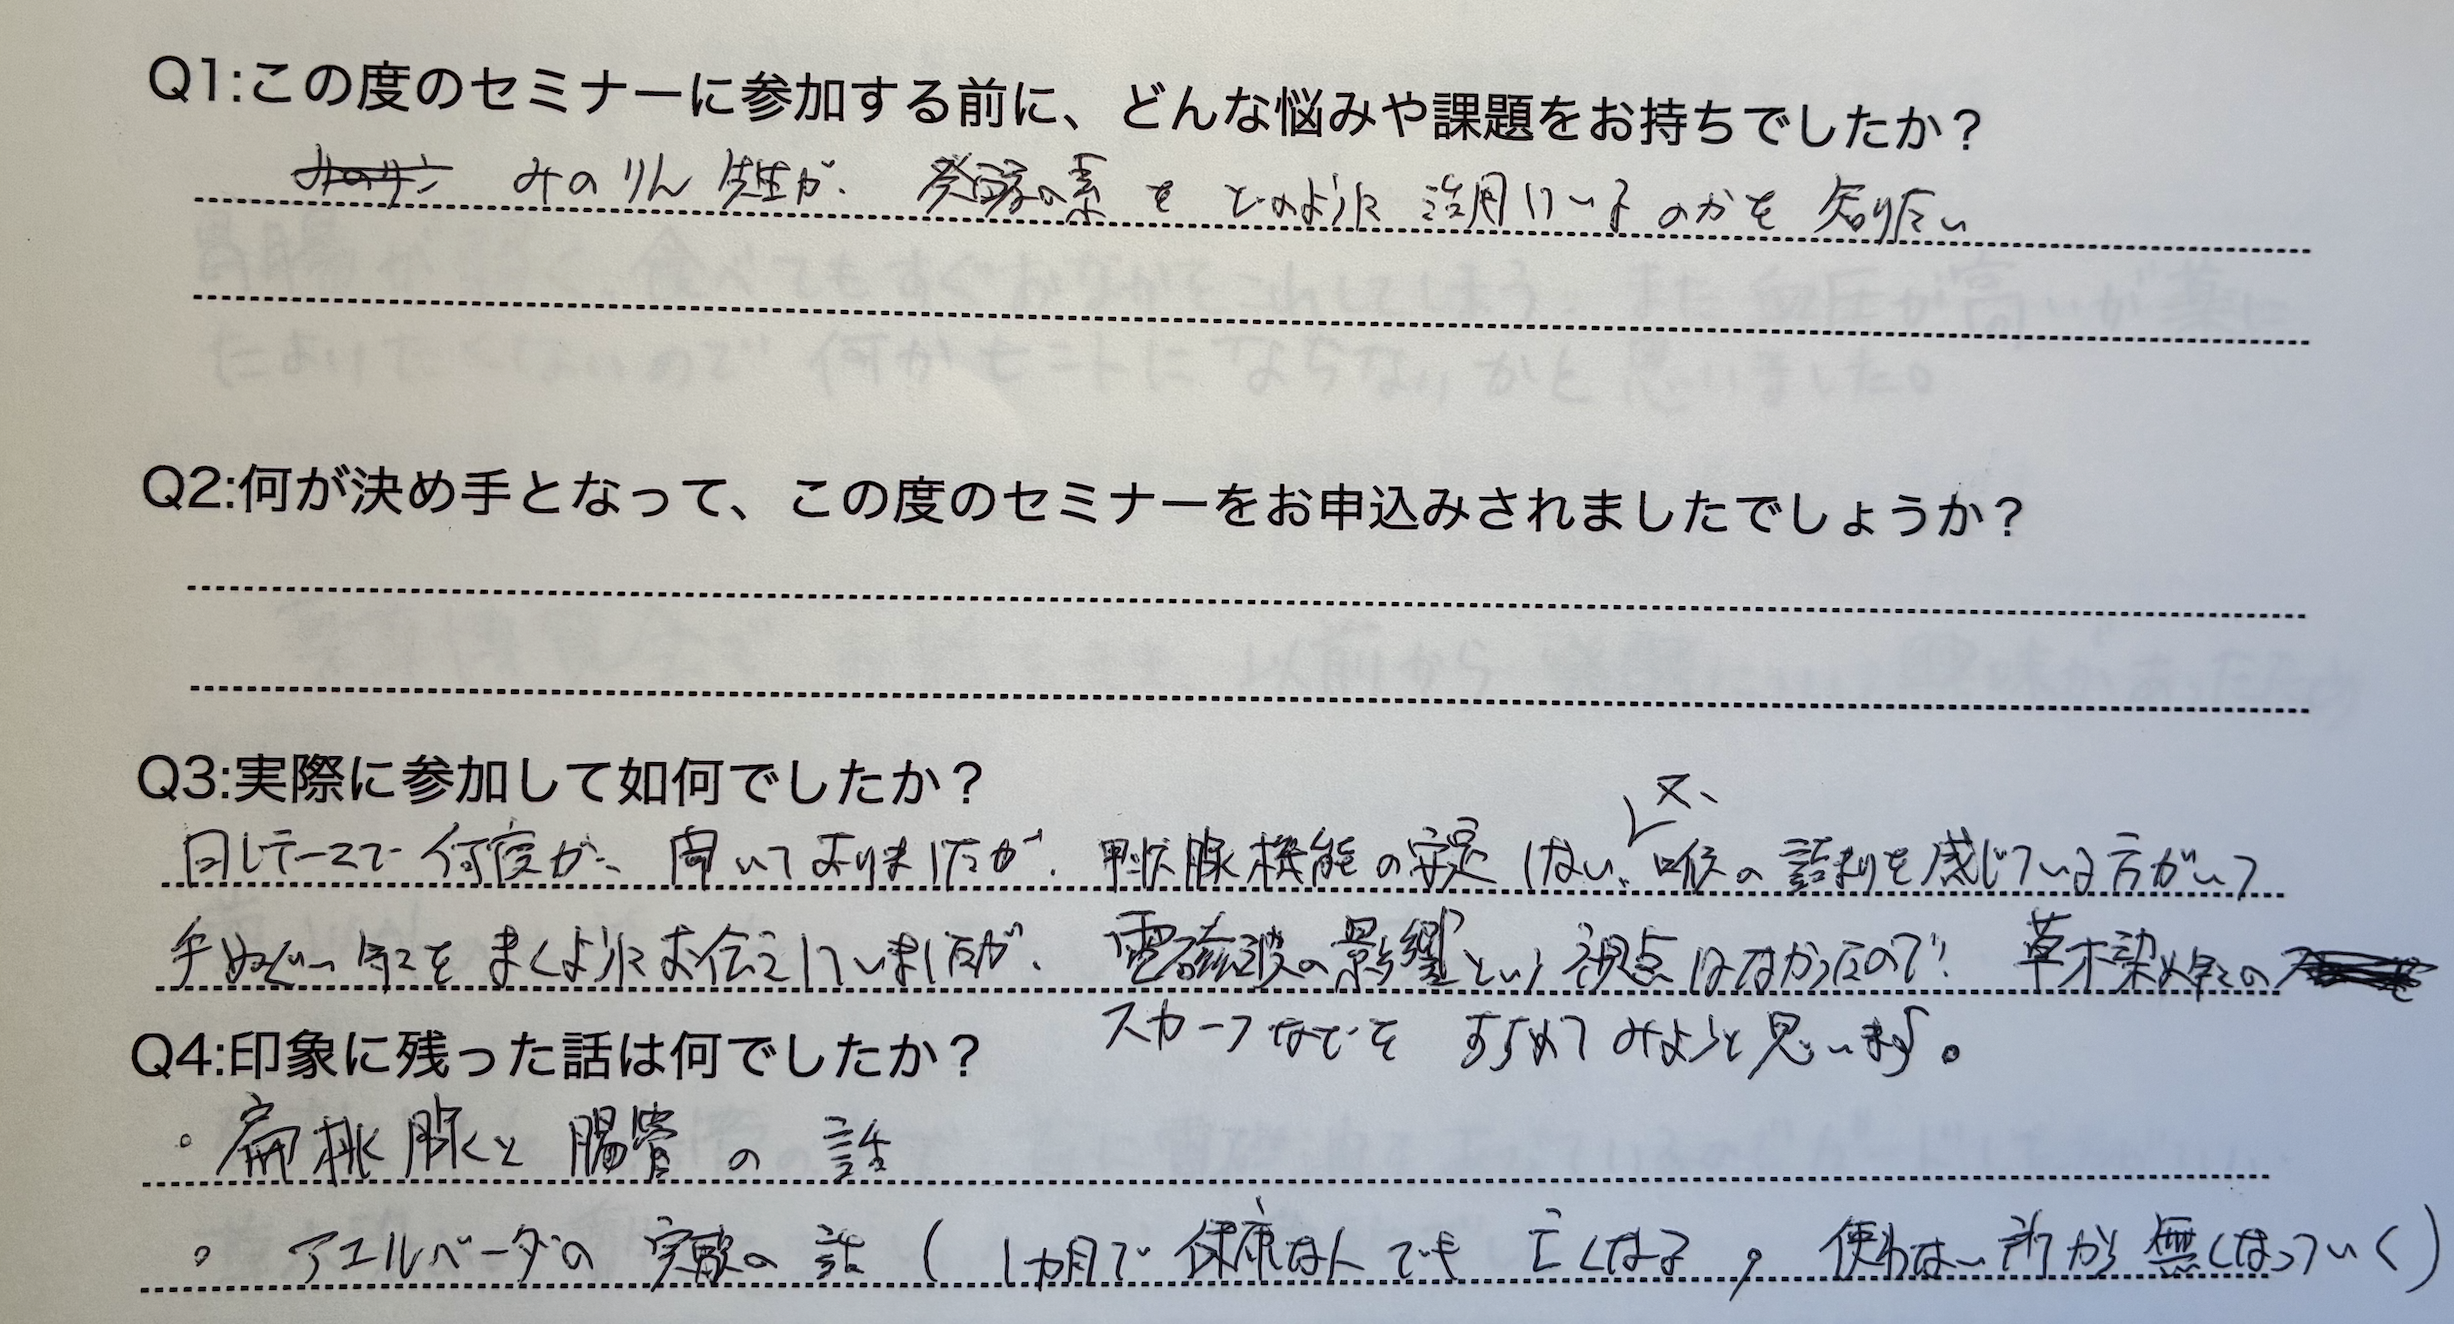 Q1:この度のセミナーに参加する前に、どんな悩みや課題をお持ちでしたか?
みのりん先生が、発酵の素をどのように活用しているのかを知りたい
Q2:何が決め手となって、この度のセミナーをお申込みされましたでしょうか?
Q3:実際に参加して如何でしたか?
又、
同じテーマで何度か、聞いておりましたが、甲状腺機能の安定しない、喉の詰まりを感じている方がいて
手ぬぐい等をまくようにお伝えしていましたが、電磁波の影響という視点はなかったので、草木染め等の
スカーフなどをすすめてみようと思います。
Q4:印象に残った話は何でしたか?
・扁桃腺と腸管の話
・アユルベーダの実験の話(1カ月で健康な人でも亡くなる,使わない所から無くなっていく)